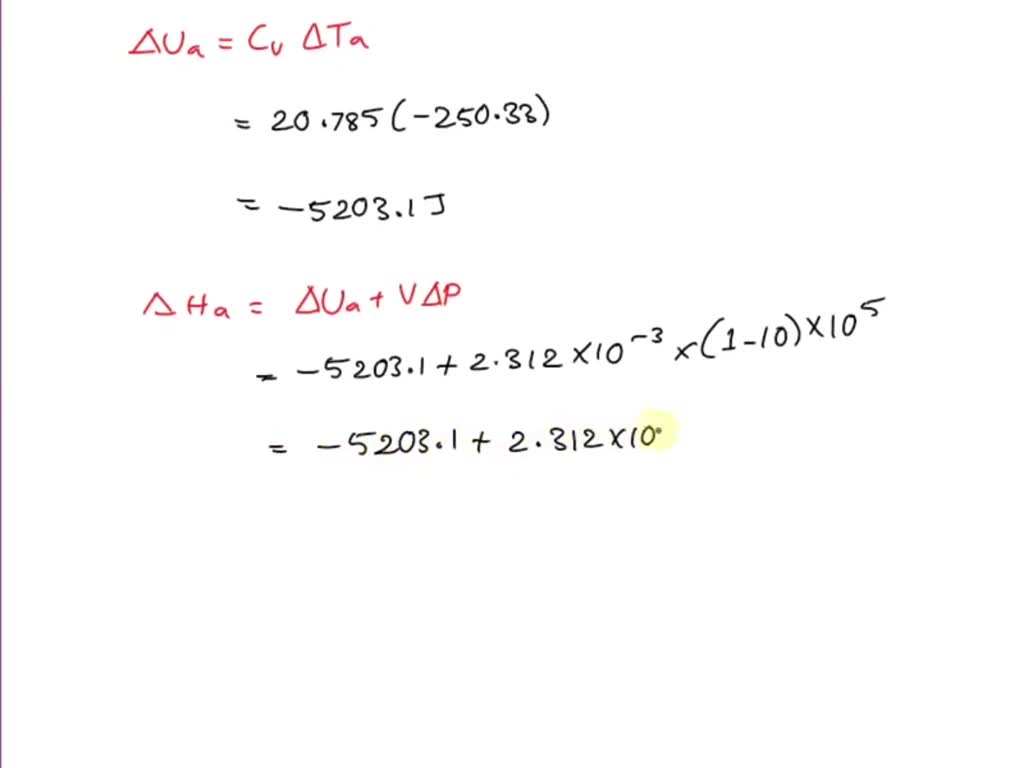 ΔUa = Cv ΔTa
= 20.785(-250.33)
= -5203.1 J
ΔHa = ΔUa + VΔP
= -5203.1 + 2.312 ×10⁻³ ×(1-10)×10⁵
= -5203.1 + 2.312 ×10